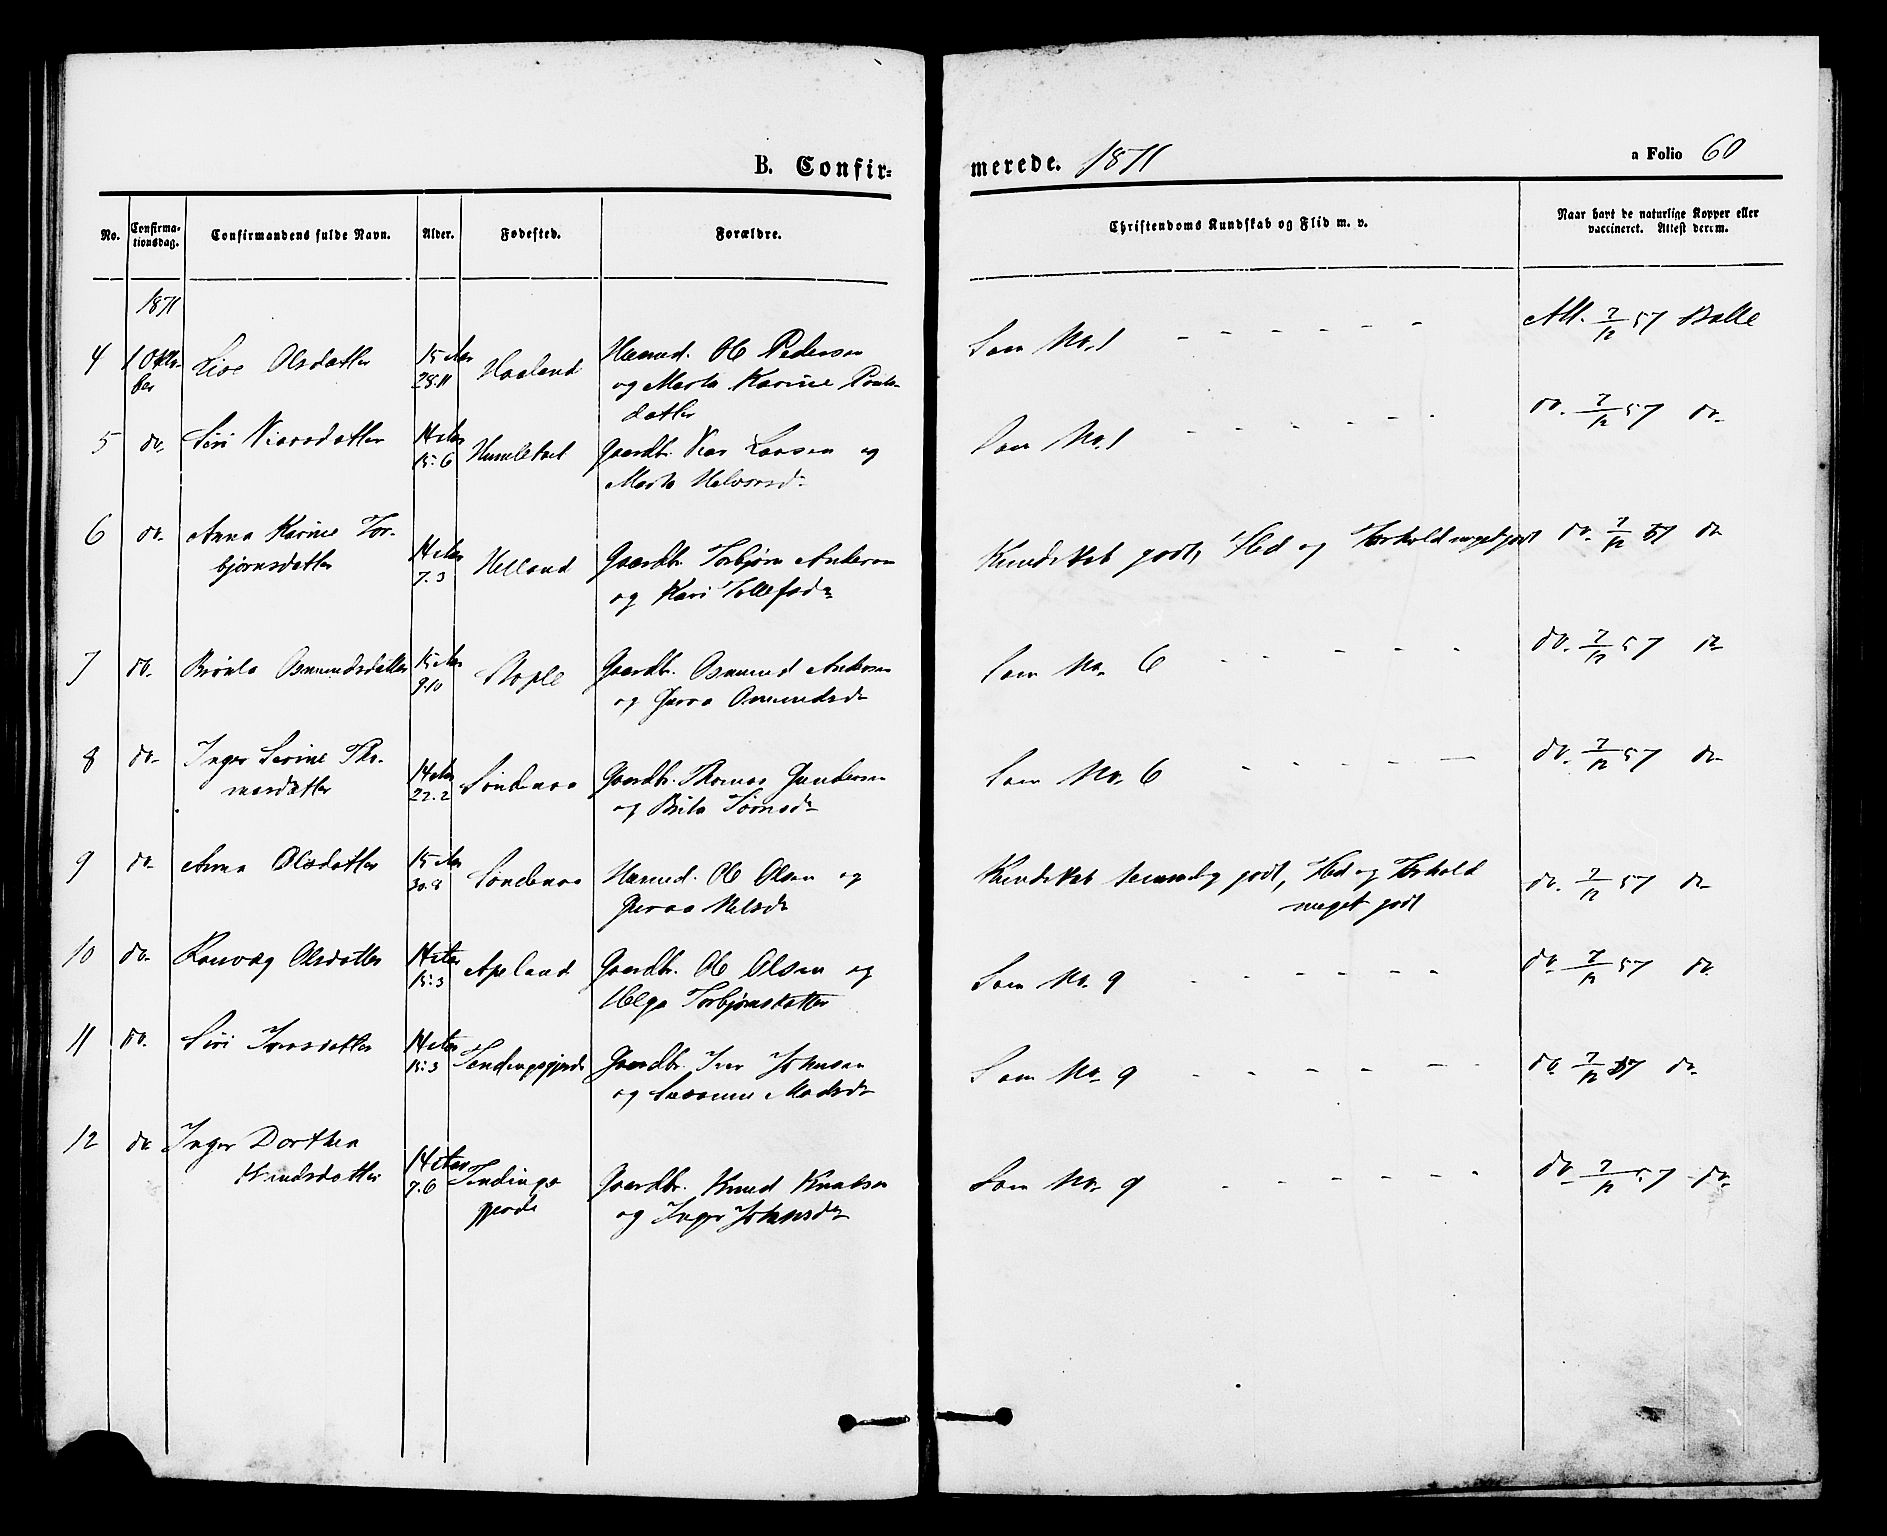 B. Confir=
merede. 1871
a Folio 60
No.
Confirma-
tionsdag.
Confirmandens fulde Navn.
Alder.
Fødested.
Forældre.
Christendoms Kundskab og Flid m. v.
Naar havt de naturlige Kopper eller
vaccineret. Attest derom.
1871
4 1 Okto-
ber Olsdatter 15 Aar
28.11 Haaland Huusmd. Ole Pedersen
og Marta Karine
datter
Som No. 1 - - - - - - Att. 7/12 57 Balle
5 do. Siri Viarsdatter 14 Aar
15.6 Humlekvet Gaardbr. Viar Larsen og
Marta Halvorsd.
Som No. 1 - - - - - - do. 7/12 57 do.
6 do. Anna Karine Tor-
bjørnsdatter 14 Aar
7.3 Helland Gaardbr. Torbjørn Andersen
og Kari Tollefsd.
Kundskab godt, Flid og Forhold meget godt do. 7/12 57 do
7 do. Osmundsdatter 15 Aar
9.10 Stople Gaardbr. Osmund Andersen
og Osmundsd.
Som No. 6 - - - - - do. 7/12 57 do
8 do. Inger Serine Tho-
masdatter 14 Aar
22.2 Søndenaa Gaardbr. Thomas Gundersen
og Brita
Som No. 6 - - - - - do. 7/12 57 do
9 do Anna Olsdatter 15 Aar
30.8 Søndenaa Huusmd. Ole Olsen og
Nelsd.
Kundskab temmelig godt, Flid og Forhold
meget godt do. 7/12 57 do
10 do. Olsdatter 14 Aar
15.3 Apeland Gaardbr. Ole Olsen og
Helga Torbjørnsdatter
Som No. 9 - - - - - do 7/12 57 do.
11 do. Siri Iversdatter 14 Aar
15.3 Tendingsgjerde Gaardbr. Iver Johnsen
og Susanne Madsd.
Som No. 9 - - - - - - do 7/12 57 do.
12 do Inger Dorthea
Knudsdatter 14 Aar
7.6 Tendings-
gjerde Gaardbr. Knud Knutsen
og Inger Johnsd.
Som No. 9 - - - - - - do. 7/12 57 do.